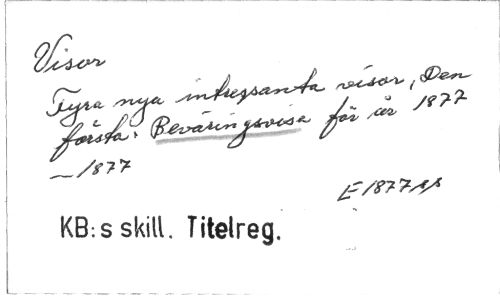 Visor
Fyra nya intressanta visor, Den
första: Beväringsvisa för år 1877
— 1877
E 1877
KB:s skill. Titelreg.